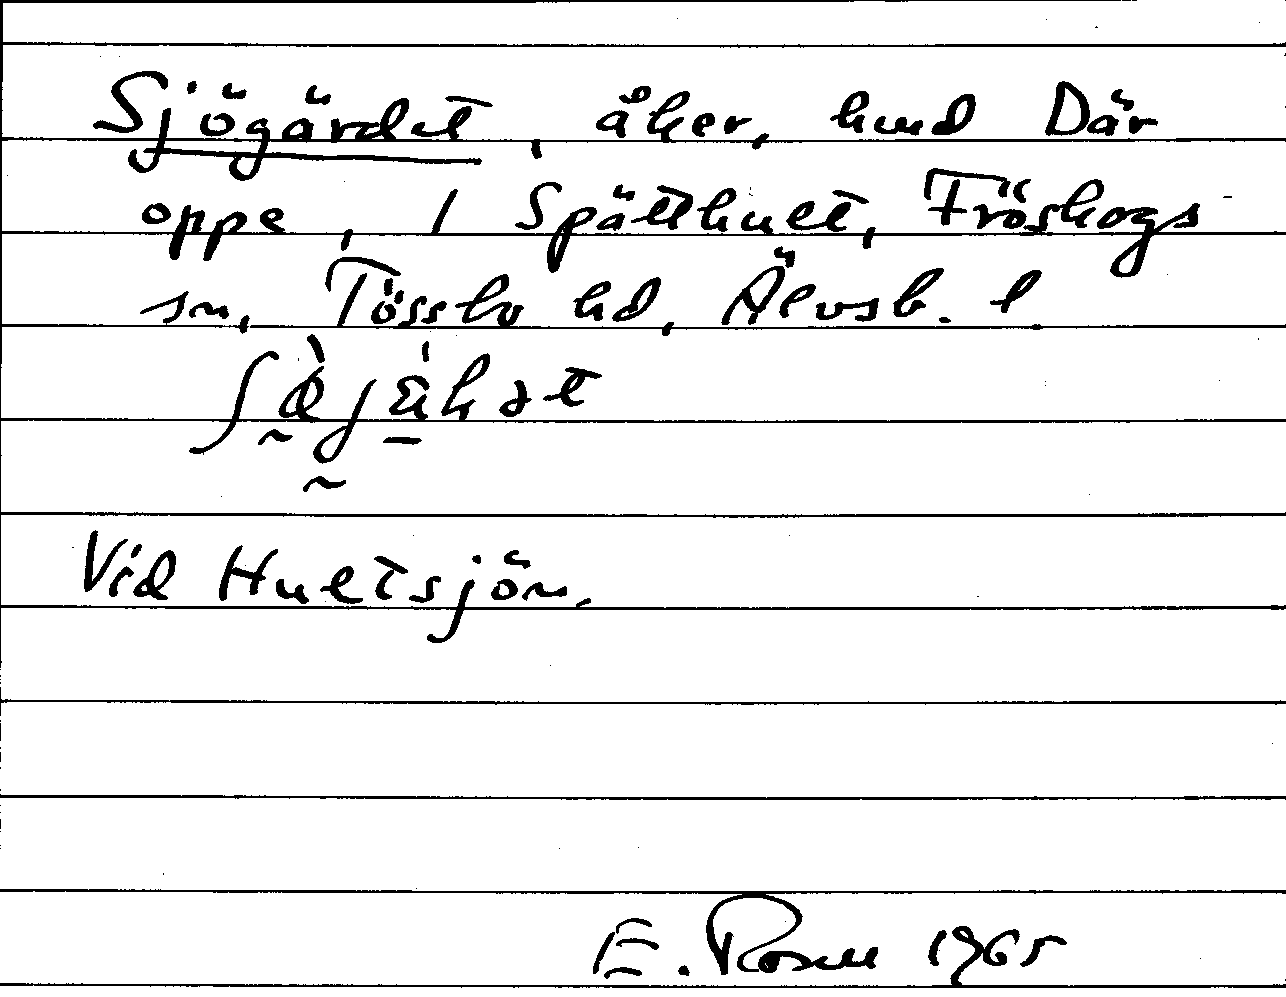 Sjögärdet, åker, hmd Där
oppe, 1 Spätthult, Fröskogs
sn, Tössbo hd, Älvsb. l.
Vid Hultsjön.
E. Rosell 1965